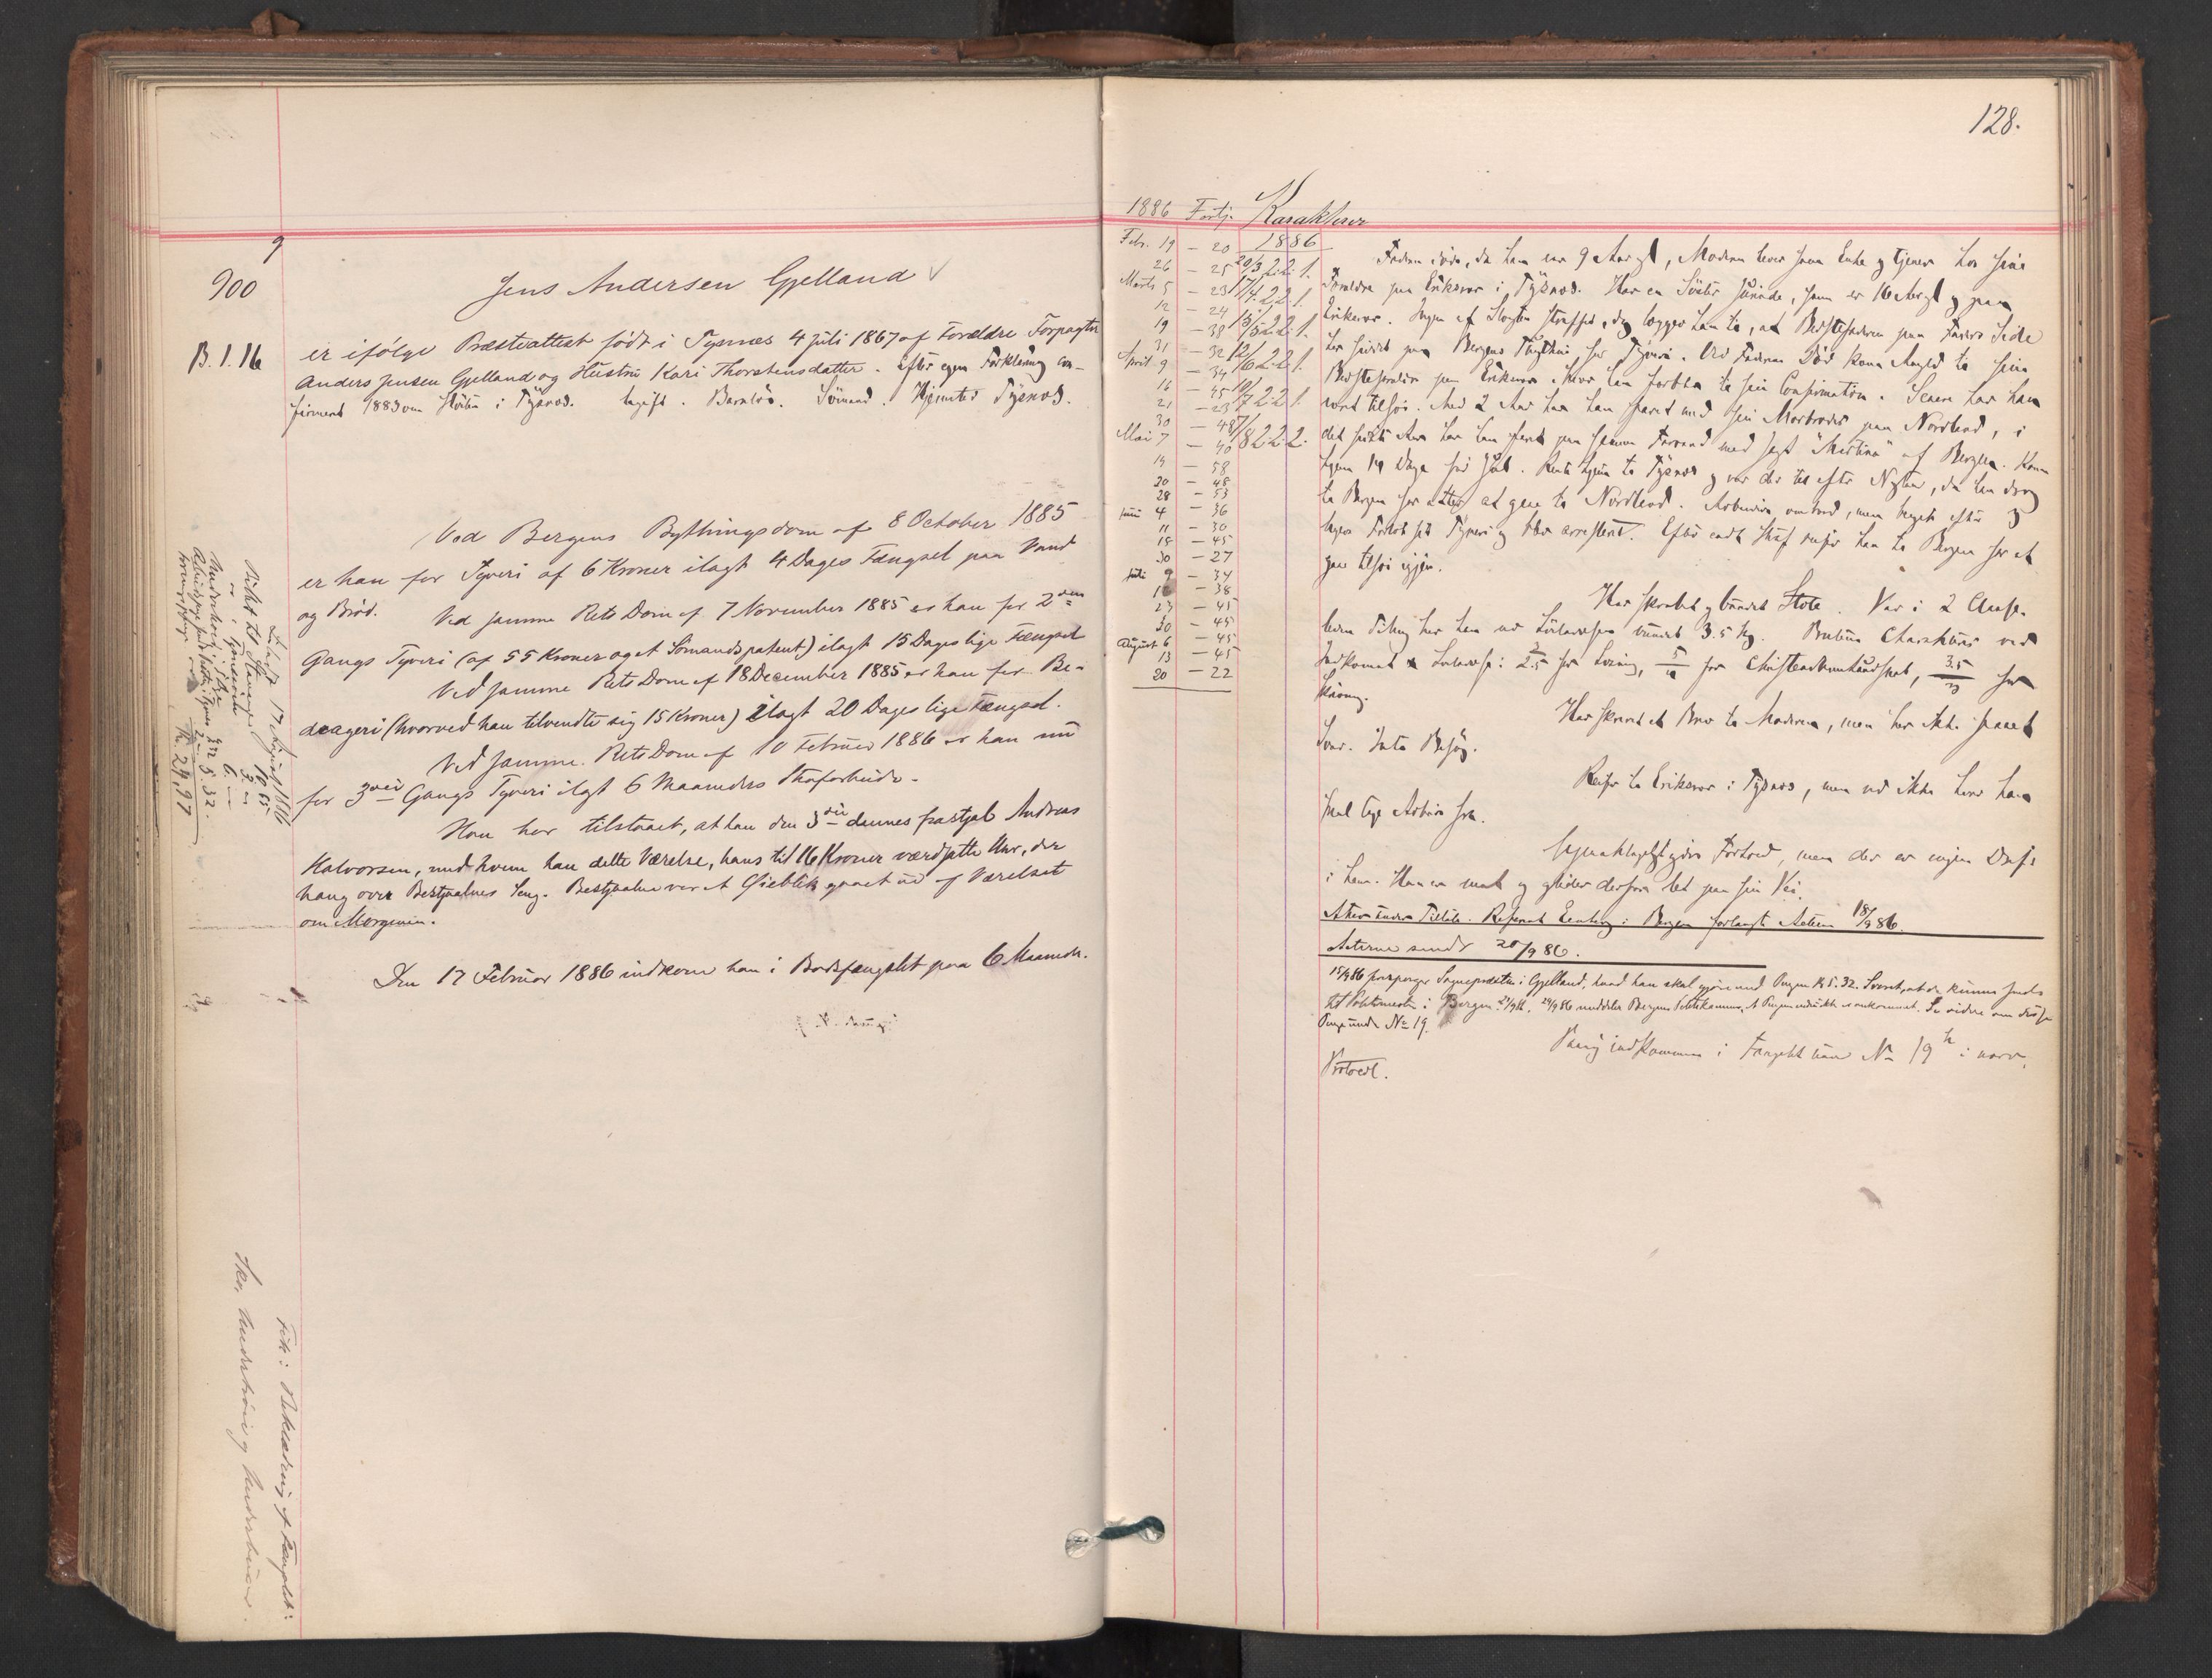 9
900
B. 1. 16
Jens Andersen Gjelland
er ifølge Præsteattest født i Tysnæs 4 Juli 1867 af Forældre Forpagter
Anders Jensen Gjelland og Hustru Kari Thorstensdatter. Efter egen Forklaring con-
firmeret 1883 om Høsten i Tysnæs. Ugift. Barnløs. Sömand. Hjemsted Tysnæs.
Ved Bergens Bythingsdom af 8 October 1885
er han for Tyveri af 6 Kroner ilagt 4 Dages Fængsel paa Vand
og Brød.
Ved samme Rets Dom af 7 November 1885 er han for 2den
Gangs Tyveri (af 55 Kroner og et Sömandspatent) ilagt 15 Dages lige Fængsel
Ved samme Rets Dom af 18 December 1885 er han for Be-
drageri (hvorved han tilvendte sig 15 Kroner) ilagt 20 Dages lige Fængsel.
Ved samme Rets Dom af 10 Februar 1886 er han nu
for 3die Gangs Tyveri ilagt 6 Maaneders Strafarbeide.
Han har tilstaaet, at han den 3die dennes frastjal Andreas
Halvorsen, med hvem han delte Værelse, hans til 16 Kroner værdsatte Uhr, der
hang over Bestjaalnes Seng. Bestjaalne var et Øieblik gaaet ud af Værelset
om Morgenen.
Den 17 Februar 1886 indkom han i Bodsfængslet paa 6 Maaneder.
Løsladt 17 August 1886
Th. 24,97
Fik: Beklædning af Fængslet:
Sko, Underträie og Underbuxer.
128.
1886 Fortj. Karakterer
1886
Febr. 19 – 20
26 – 25 20/3 2. 2. 1.
Marts 5 – 23 17/4. 2. 2. 1.
12 – 24
19 – 38 15/5 2. 2. 1.
31 – 32 12/6 2. 2. 1.
April 9 – 34
16 – 45 10/7 2. 2. 1.
21 – 23
30 – 48 7/8 2. 2. 2.
Mai 7 – 40
14 – 58
20 – 48
28 – 53
Juni 4 – 36
11 – 30
18 – 45
30 – 27
Juli 9 – 34
16 – 38
23 – 45
30 – 45
August 6 – 45
13 – 45
20 – 22
Faderen døde, da han var 9 Aar gl, Moderen lever som Enke og tjener hos sine
Forældre paa Eriksvær i Tysnæs. Har en Søster, som er 16 Aar gl og paa
Eriksvær. Ingen af Slægten straffet, dog lægger han til, at Bedstefaderen paa Faders Side
har siddet paa Bergens Tugthus for Tyveri. Ved Faderens Død kom Angld til sine
Bedsteforældre paa Eriksvær, hvor han forblev til sin Confirmation. Senere har han
været tilsøs. Med 2 Aar har han faret med sin Morbroder paa Nordland, i
det sidste Aar har han faret paa samme Farvand med Jagt "Martina" af Bergen. Kom
hjem 14 Dage før Jul. Reiste hjem til Tysnæs og var der til efter Nytaar, da han drog
til Bergen for atter at gaa til Nordland. Arbeidede ombord, men begik efter
sit Tyveri og blev arresteret. Efter endt Straf reiser han til Bergen for at
gaa tilsøs igjen.
Har skrabet og bundet Stole. Var i 2 Classe.
3.5 Kg. Charakterer ved
Indkomst & Løsladelse: 2/2.5 for Læsning, for Christendomskundskab, for
Skrivning.
Har skrevet et Brev til Moderen, men har ikke faaet
Svar. Intet Besøg.
Reiser til Eriksvær i Tysnæs, men ved ikke hvor han
skal tage Arbeide fra.
men der er ingen
i ham. Han er mat og glider derfor let paa sin Vei.
Acterne sendt 20/9 86.
15/9 86 forespørger Sognepræsten i Gjelland, hvad han skal gjøre med Pengene Kr 5.32. Svaret, at de kunne sendes
til Politimesteren i Bergen 24/9 86. 29/9 86 meddeler Bergens Politikammer, at Pengene ankommet. Se videre om disse
Penge under No 19.
Paany indkommen i Fængslet under No 19 h i nærv.
Protocol.